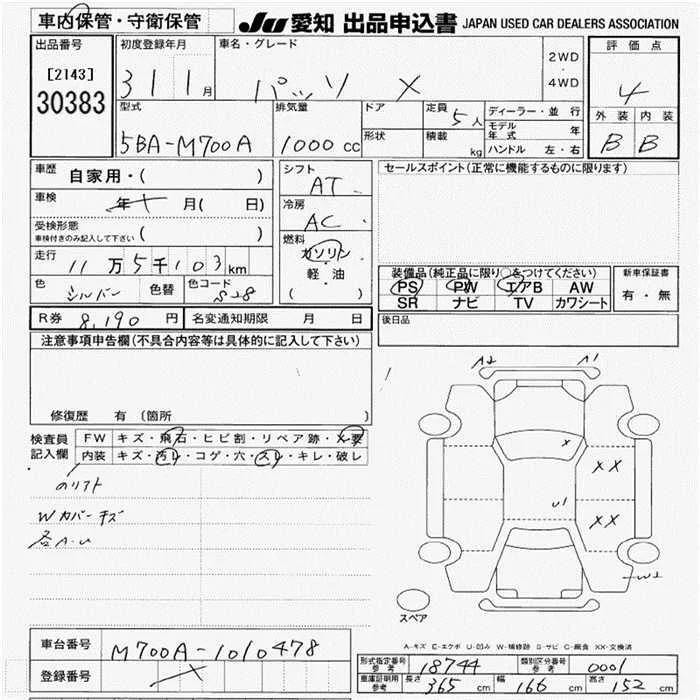 車内保管・守衛保管 JU 愛知 出品申込書 JAPAN USED CAR DEALERS ASSOCIATION
出品番号 [2143] 30383
初度登録年月 31 1月
車名・グレード パッソ X
2WD・4WD
評価点 4
外装 B 内装 B
型式 5BA-M700A
排気量 1000cc
ドア
形状
定員 5人
積載 kg
ディーラー・並行
モデル年式 年
ハンドル 左・右
車歴 自家用・( )
車検 年 月( 日)
受検形態 車検付きのみ記入して下さい ( )
走行 11万5千103km
色 シルバー 色替 色コード S28
シフト AT
冷房 AC
燃料 ガソリン・軽・油 ( )
セールスポイント(正常に機能するものに限ります)
装備品(純正品に限り○をつけてください)
PS PW エアB AW
SR ナビ TV カワシート
新車保証書 有・無
後日品
R券 8,190円 名変通知期限 月 日
注意事項申告欄(不具合内容等は具体的に記入して下さい)
修復歴 有 (箇所 )
検査員記入欄
FW キズ・飛石・ヒビ割・リペア跡・X要
内装 キズ・汚レ・コゲ・穴・スレ・キレ・破レ
Wカバーキズ
各A.U
A2 A1
X
XX
U1
XX
W2
スペア
A-キズ E-エクボ U-凹み W-補修跡 S-サビ C-腐食 XX-交換済
車台番号 M700A-1010478
登録番号
形式指定番号 参考 18744 類別区分番号 参考 0001
車庫証明用 参考 長さ 365cm 幅 166cm 高さ 152cm